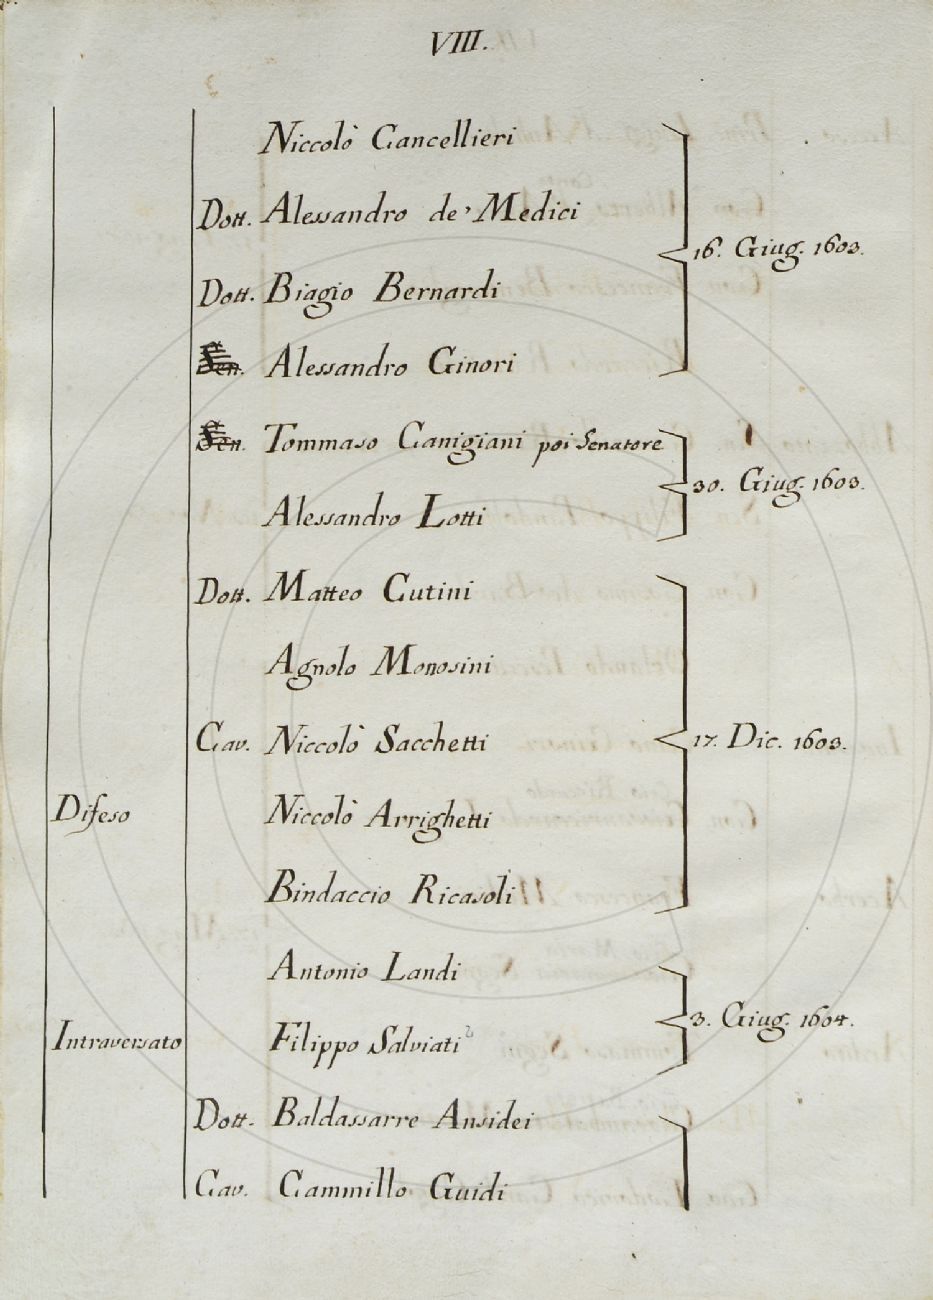 VIII.
Niccolò Cancellieri
Dott. Alessandro de' Medici
16. Giug. 1603.
Dott. Biagio Bernardi
Sen. Alessandro Ginori
Sen. Tommaso Canigiani poi Senatore
30. Giug. 1603.
Alessandro Lotti
Dott. Matteo Cutini
Agnolo Monosini
Cav. Niccolò Sacchetti
17. Dic. 1603.
Difeso Niccolò Arrighetti
Bindaccio Ricasoli
Antonio Landi
3. Giug. 1604.
Intraversato Filippo Salviati
Dott. Baldassarre Ansidei
Cav. Cammillo Guidi